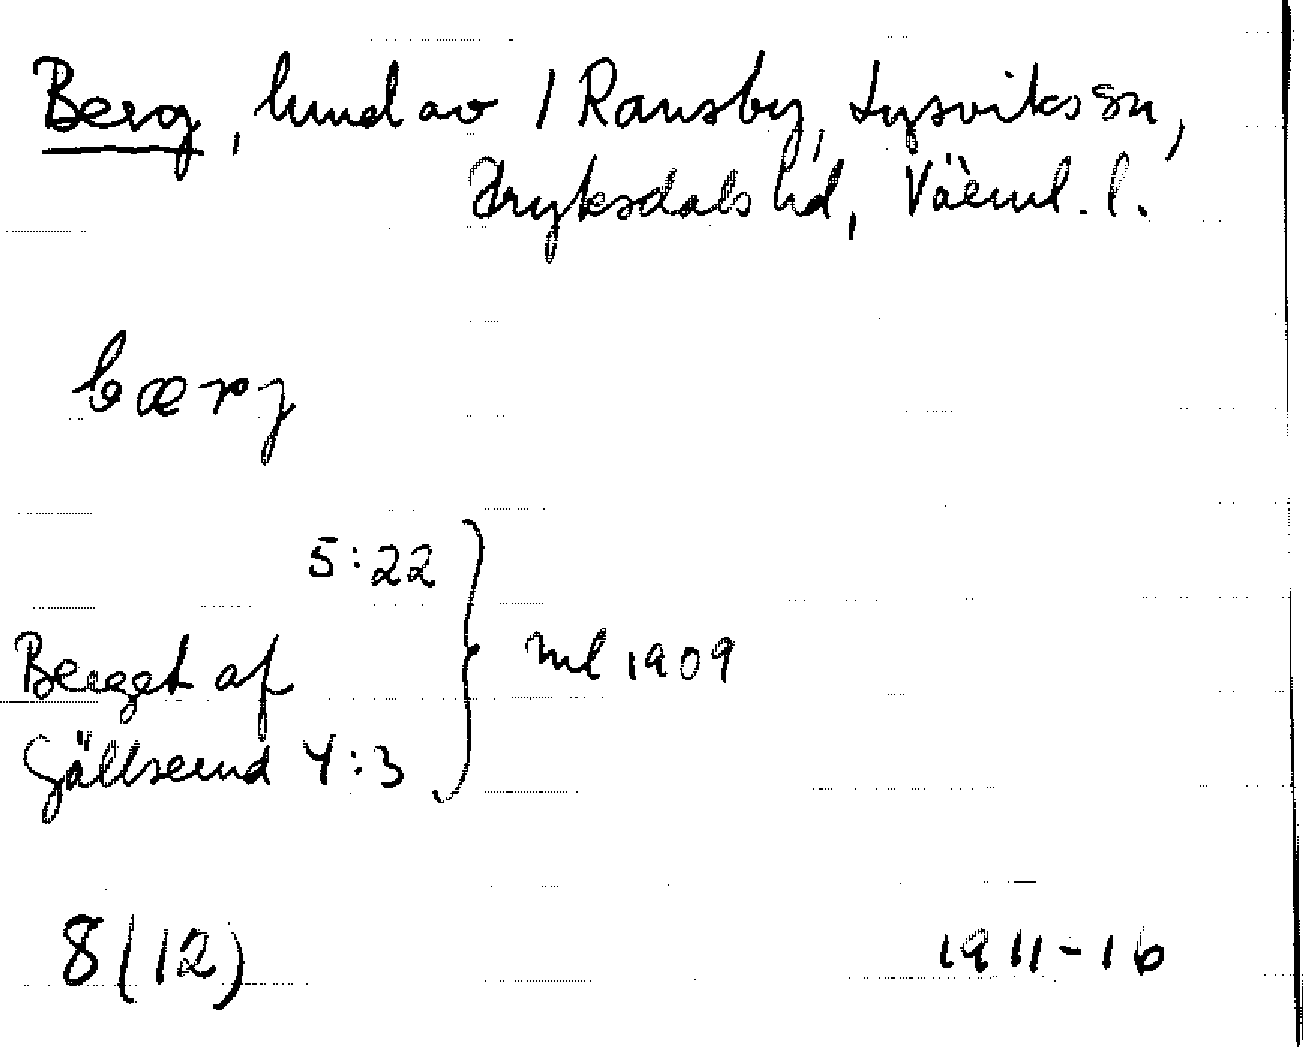 Berg, lund av 1 Ransby, Lysviks sn,
Fryksdals hd, Värml. l.
bærj
5:22
Berget af
Gällserud 4:3
ml 1909
8(12)
1911-16